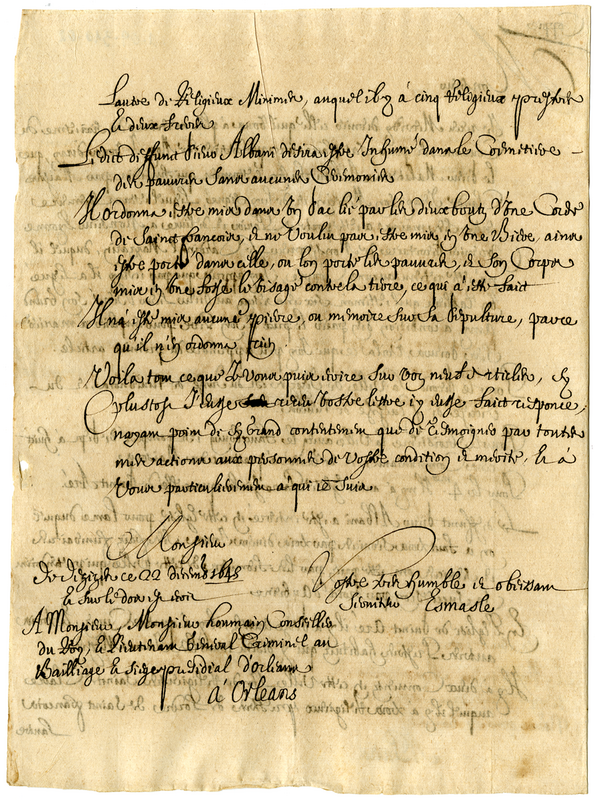 Lautre de Religieux Minimes, auquel il y à cinq Religieux prestres
& deux freres
Ledict deffunct sieur Albani desira estre Inhumé dans le Cemetiere
des pauvres sans aucunes Ceremonies
Il ordonna estre mis dans un sac lié par les deux boutz d'une Corde
de Sainct francois, et ne voulut pas estre mis en une Biere, ains
estre porté dans celle, ou lon porte les pauvres, et son Corps
mis en une fosse le visage contre la terre, ce qui à esté faict
Il n'à esté mis aucune pierre, ou memoire sur sa sepulture, parce
qu'il n'en ordonna rien
Voila tout ce que Je vous puis écrire sur voz neuf articles, Sy
plustost J'eusse receu vostre lettre j'y eusse faict responce,
nayant point de sy grand contentement que de tesmoigner par toutes
mes actions aux personnes de vostre condition et merite, & à
vous particulierement à qui ie suis
Monsieur
De ce 22 1645
Vostre tres humble et obeissant
serviteur Esmasle
& sur le dos est écrit
A Monsieur, Monsieur houmain Conseiller
du Roy, & Lieutenant General Criminel au
Bailliage & siege presidial d'orleans
à Orleans